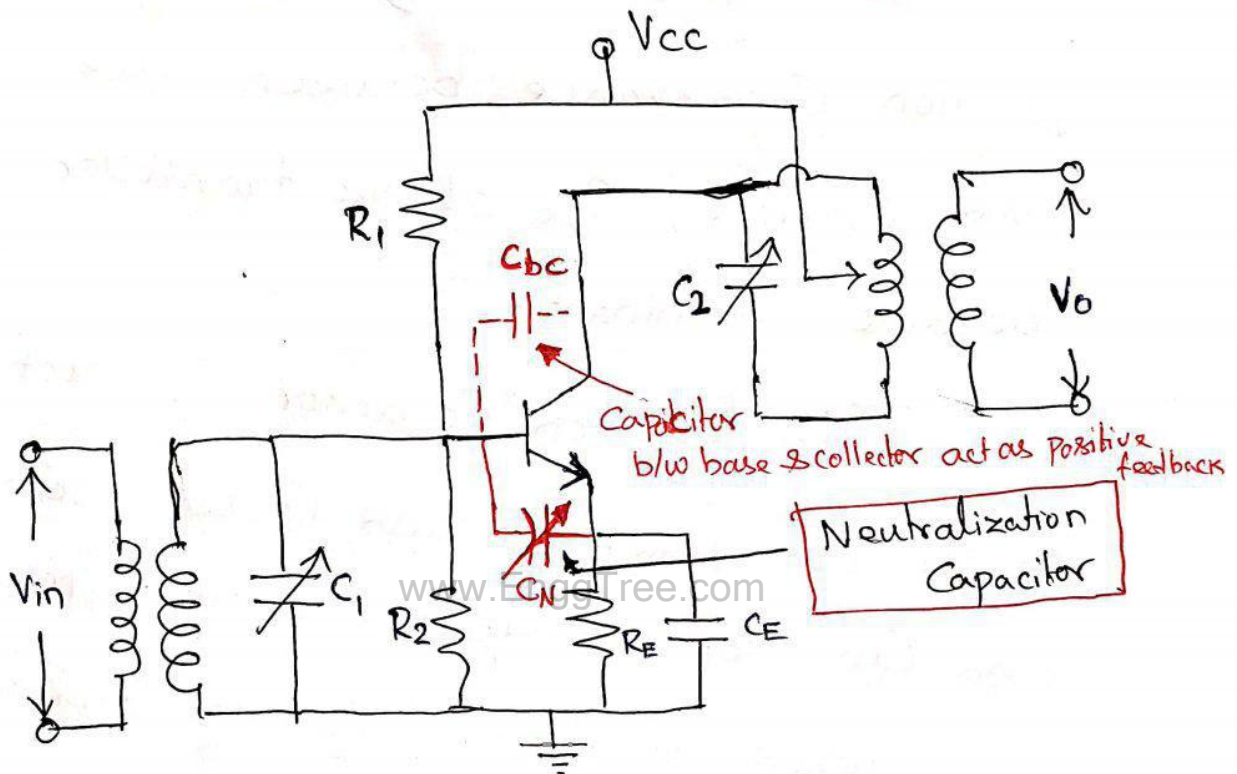 Vcc
R1
Cbc
C2
Vo
Capicitor
b/w base & collector act as positive
feedback
Neutralization
Capacitor
Vin
C1
www.EnggTree.com
CN
R2
RE
CE